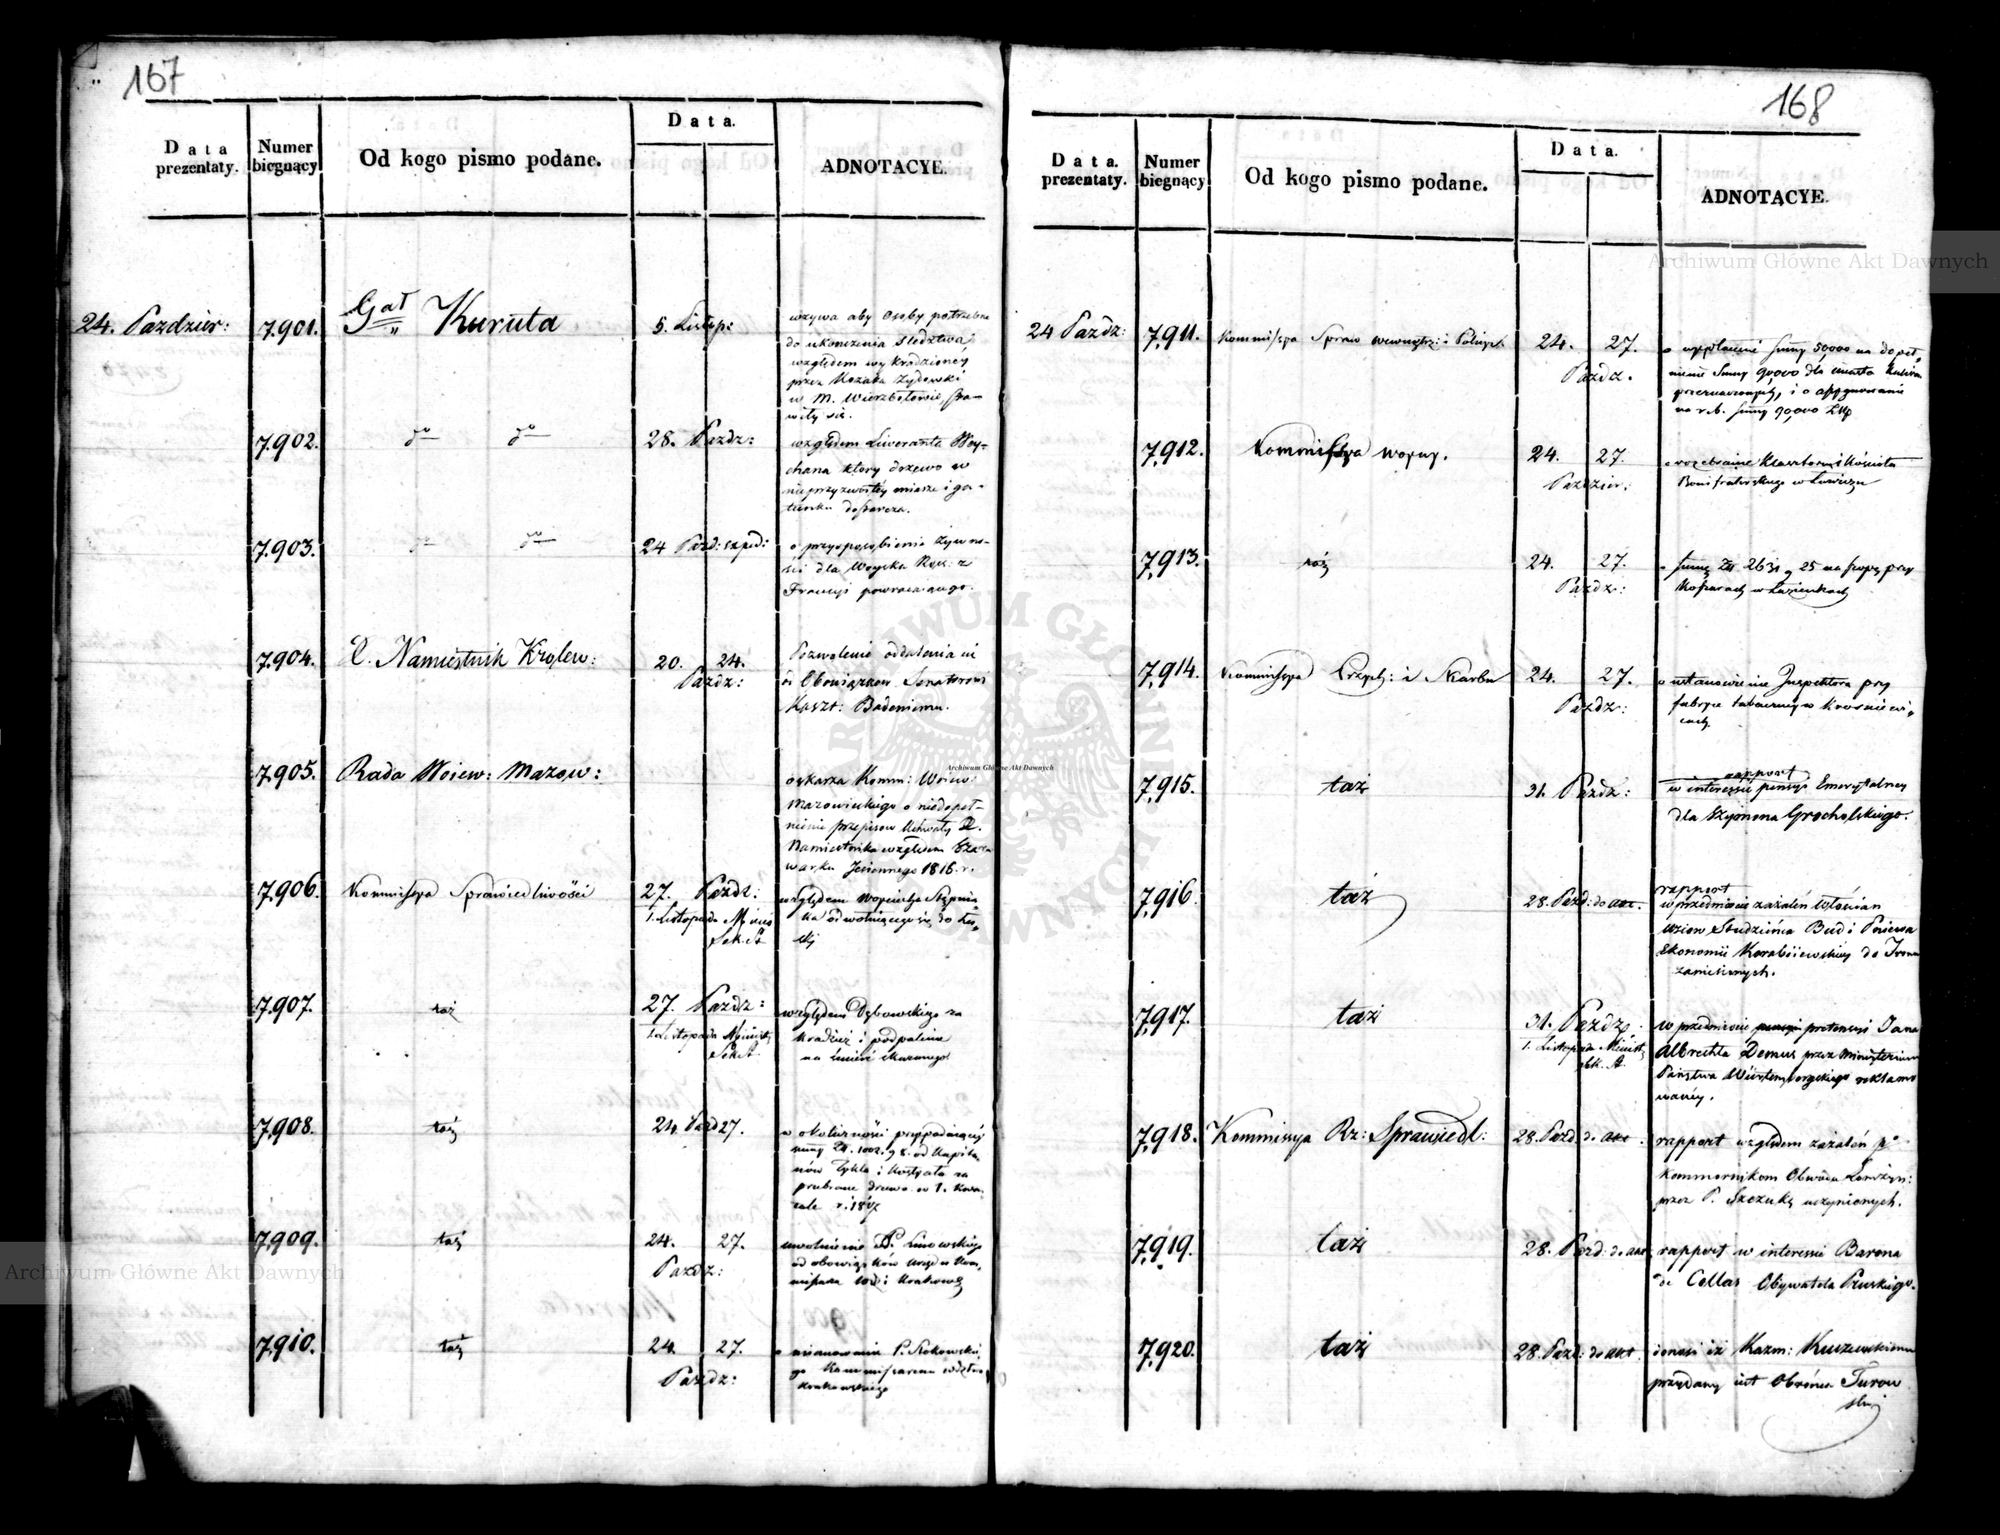 167
Data
prezentaty.
Numer
biegnący
Od kogo pismo podane.
Data.
ADNOTACYE.
24. Pazdzier:
7,901.
Gał Kuruta
5. Listop:
wzywa aby osoby potrzebne
do ukonczenia Sledztwa
względem wykradzioney
przez Kozaka Żydowki
w M. Wierzbołowie, sta-
wiły się.
7,902.
do do
28. Pazdz:
względem Liweranta
chana ktory drzewo w
nieprzyzwoitey miarze i ga-
tunku dostarcza.
7,903.
do do
24 Pazd: exped:
o przysposobienie żywno-
ści dla Woyska Ross: z
Francyi powracaiącego.
7,904.
X. Namiestnik Królew:
20. 24.
Pazdz:
Pozwolenie oddalenia się
od Obowiązkow Senatorowi
Kaszt: Badeniemu.
7,905.
Rada Woiew: Mazow:
oskarża Komm: Woiew:
Mazowieckiego o niedopeł-
nienie przepisow Uchwały X.
Namiestnika względem Szar-
warku Jesiennego 1816. r.
7,906.
Kommissya Sprawiedliwości
27. Pazdz:
1. Listopada
Sek. St
względem Woyciecha Stępnia-
ka odwołuiącego się do Ła-
ski
7,907.
taż
27. Pazdz:
1. Listopada Minist
Sek St.
względem Dębowskiego za
kradzież i podpalenie
na śmierć skazanego.
7,908.
taż
24 Pazd 27.
o okoliczności przypadaiącey
summy Zł. 1002. g 8. od Kapita-
now
pobrane drzewo w 1. kwar-
tale r. 1817
7,909.
taż
24. 27.
Pazdz:
uwolnienie P. Linowskiego
od obowiązków Urzędu Kom-
missarza
7,910.
taż
24. 27.
Pazdz:
o mianowanie P. Rokowskie-
go Kommissarzem
Krakowskiego
168
Data.
prezentaty.
Numer
biegnący
Od kogo pismo podane.
Data.
ADNOTACYE.
24 Pazdz:
7,911.
Kommissya Spraw wewnątrz: i Policyi
24. 27.
Pazdz.
o wypłacenie summy 50000 na dopeł-
nienie Summy 90,000 dla miasta
przeznaczonych, i o assygnowanie
na r. b. summy 90,000 Złp
7,912.
Kommissya Woyny.
24. 27.
Pazdzier:
o rozebranie Klasztoru i Kościoła
Bonifraterskiego w Łowiczu
7,913.
taż
24. 27.
Pazdz:
o summę Zł 2631 g 25 na szopę przy
Koszarach w Łazienkach
7,914.
Kommissya Przych: i Skarbu
24. 27.
Pazdz:
o ustanowienie Inspektora przy
fabryce tabaczney w Krosniewi-
cach
7,915.
taż
31. Pazdz:
rapport
w interessie pensyi Emerytalney
dla Szymona Grochalskiego.
7,916.
taż
28. Pazd: do akt.
rapport
w przedmiocie zażaleń Włościan
wziow Studzieńca Bud i
Ekonomii Korabiewskiey do Tronu
zaniesionych.
7,917.
taż
31. Pazdz.
1. Listopada Minist
Sek. St.
w przedmiocie pretensyi Jana
Albrechta Demus przez Ministerium
Państwa Würtembergskiego reklamo-
waney.
7,918.
Kommissya Rz: Sprawiedl:
28. Pazd. do akt.
rapport względem zażaleń po
Kommornikom Obwodu
przez P. Szczukę uczynionych.
7,919.
taż
28. Pazd: do akt
rapport w interessie Barona
de Collas Obywatela Pruskiego.
7,920.
taż
28. Pazd: do akt.
donosi iż Kazm: Kuszewskiemu
przydany iest Obrońca Turow
ski
Archiwum Główne Akt Dawnych